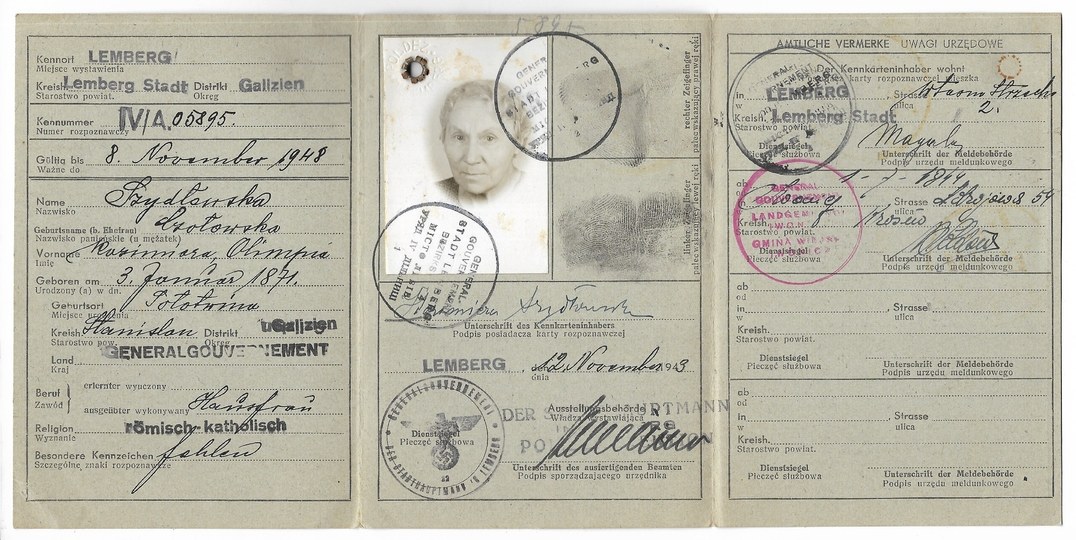 5895
Kennort LEMBERG
Miejsce wystawienia
Kreish. Lemberg Stadt Distrikt Galizien
Starostwo powiat. Okręg
Kennummer IV/A, 05895.
Numer rozpoznawczy
Gültig bis 8. November 1948
Ważne do
Name Szydłowska
Nazwisko
Geburtsname (b. Ehefrau) Czołowska
Nazwisko panieńskie (u mężatek)
Vorname Kazimiera, Olimpia
Imię
Geboren am 3. Januar 1871.
Urodzony (a) w dn.
Geburtsort
Miejsce
Kreish. Stanislau Distrikt Galizien
Starostwo pow. Okręg
Land GENERALGOUVERNEMENT
Kraj
Beruf erlernter wyuczony
Zawód ausgeübter wykonywany Hausfrau
Religion römisch-katholisch
Wyznanie
Besondere Kennzeichen fehlen
Szczególne znaki rozpoznawcze
rechter Zeigefinger
palec wskazujący prawej ręki
linker Zeigefinger
palec wskazujący lewej ręki
Kazimiera Szydłowska
Unterschrift des Kennkarteninhabers
Podpis posiadacza karty rozpoznawczej
LEMBERG 12 November 1943
dnia
GENERALGOUVERNEMENT
DER STADTHAUPTMANN IN LEMBERG
Dienstsiegel
Pieczęć służbowa
Ausstellungsbehörde
Władza wystawiająca
DER STADTHAUPTMANN
Unterschrift des ausfertigenden Beamten
Podpis sporządzającego urzędnika
AMTLICHE VERMERKE UWAGI URZĘDOWE
Der Kennkarteninhaber wohnt
karty rozpoznawczej mieszka
in LEMBERG, Strasse
w ulica 2.
Kreish. Lemberg Stadt
Starostwo powiat.
Dienstsiegel Unterschrift der Meldebehörde
Pieczęć służbowa Podpis urzędu meldunkowego
ab 1-7-1944
od
in Strasse 54
w ulica
Kreish. Krosno
Starostwo powiat.
GENERAL
GOUVERNEMENT
LANDGEMEINDE
GMINA WIEJSKA
Dienstsiegel Unterschrift der Meldebehörde
Pieczęć służbowa Podpis urzędu meldunkowego
ab
od
in , Strasse
w ulica
Kreish.
Starostwo powiat.
Dienstsiegel Unterschrift der Meldebehörde
Pieczęć służbowa Podpis urzędu meldunkowego
ab
od
in , Strasse
w ulica
Kreish.
Starostwo powiat.
Dienstsiegel Unterschrift der Meldebehörde
Pieczęć służbowa Podpis urzędu meldunkowego